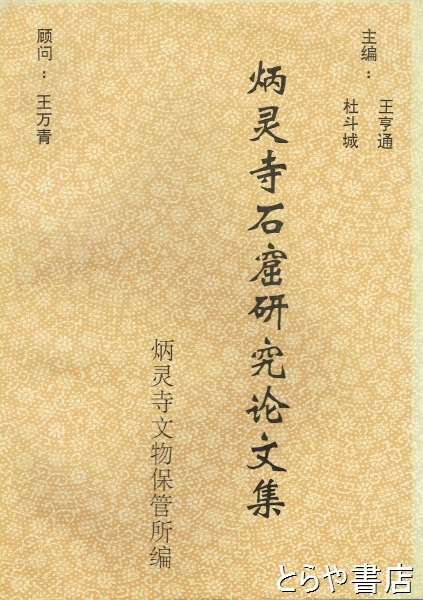 主编：
王亨通
杜斗城
炳灵寺石窟研究论文集
炳灵寺文物保管所编
顾问：王万青
とらや書店